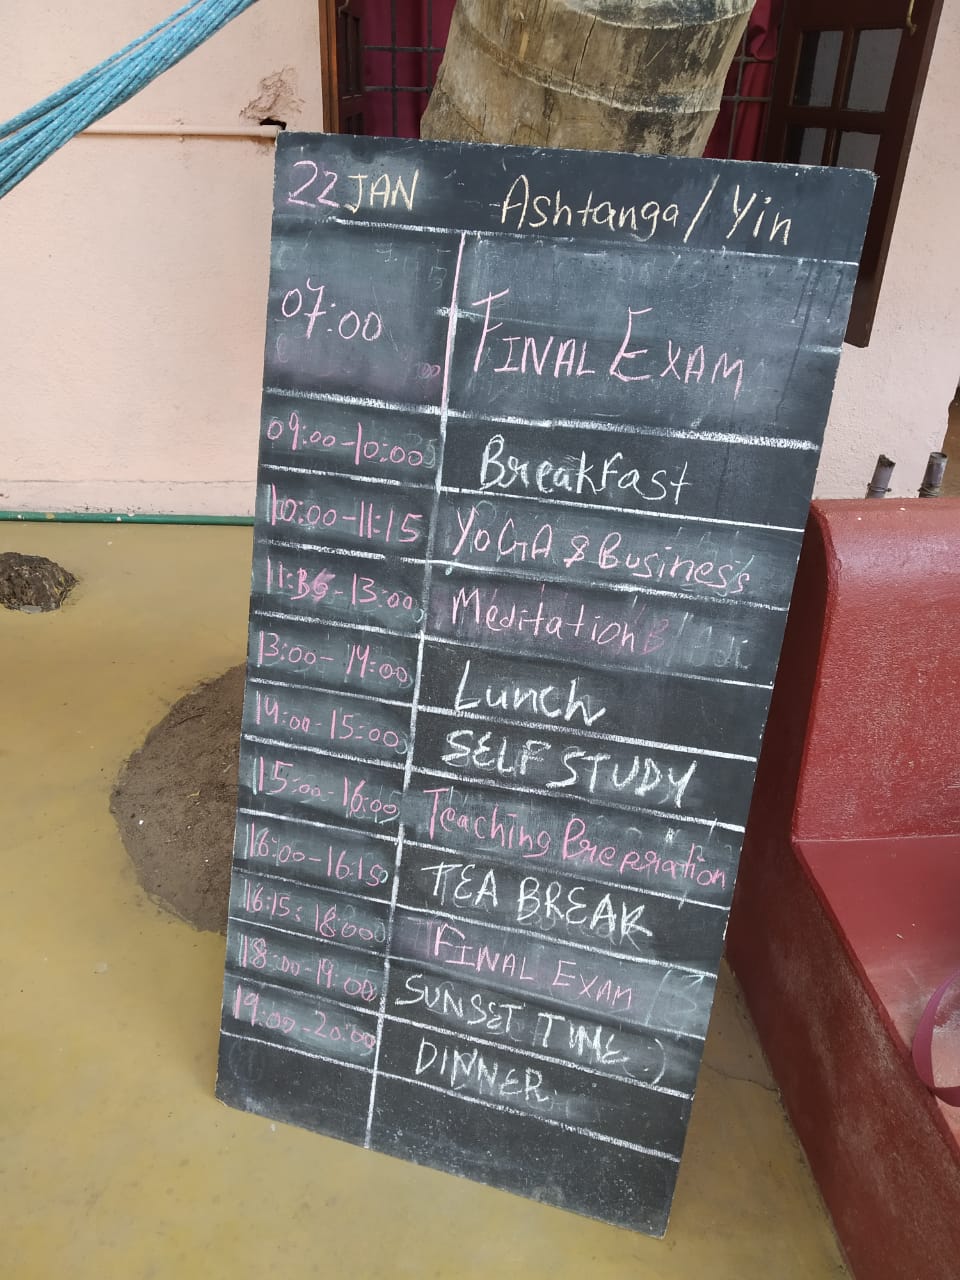 22 JAN Ashtanga / Yin
07:00 FINAL EXAM
09:00-10:00 Breakfast
10:00-11:15 YOGA & Business
13:00 Meditation
13:00-14:00 Lunch
14:00-15:00 SELF STUDY
15:00-16:00 Teaching
16:00-16:15 TEA BREAK
16:15: 18:00 FINAL EXAM
18:00-19:00 SUNSET TIME :)
19:00-20:00 DINNER